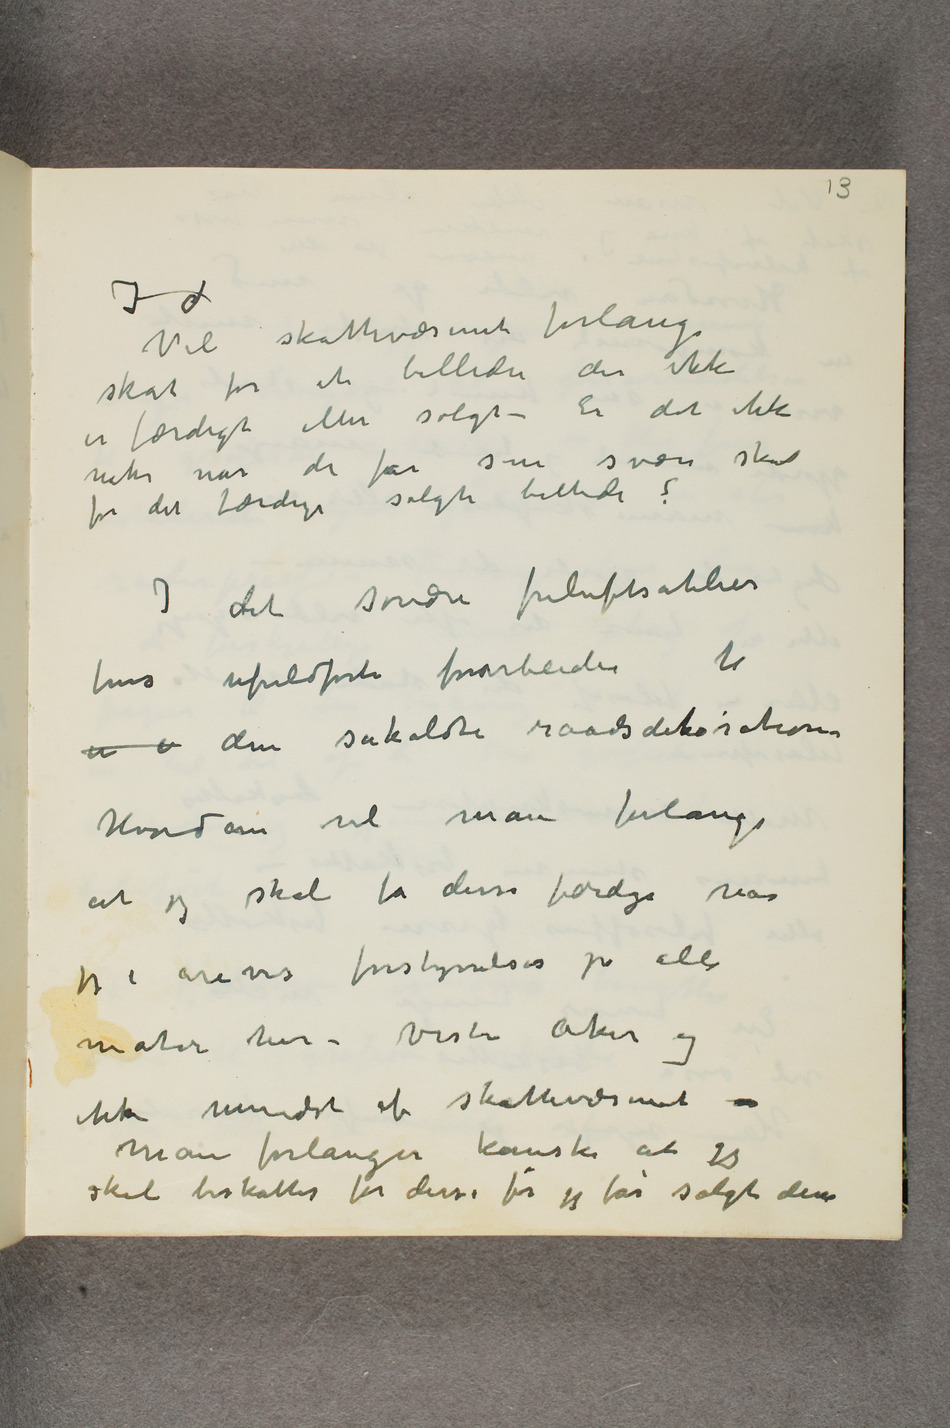 13
I d
Vil skattevæsenet forlange
skat for et billede der ikke
er færdigt eller solgt – Er det ikke
nok når de får sin svære skat
for det færdige solgte billede?
I det svære friluftsatelier
fins ufuldførte forarbeider til
den såkaldte raadsdekoration
Hvordan vil man forlange
at jeg skal få disse færdige når
jeg i årevis forstyrres på alle
måter her – Vestre Aker og
ikke mindst af skattevæsenet –
Man forlanger kanske at jeg
skal beskattes for disse før jeg får solgt dem